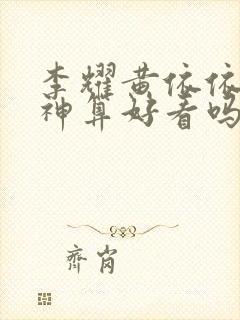 李耀黄依依
神算好看吗
齐岗